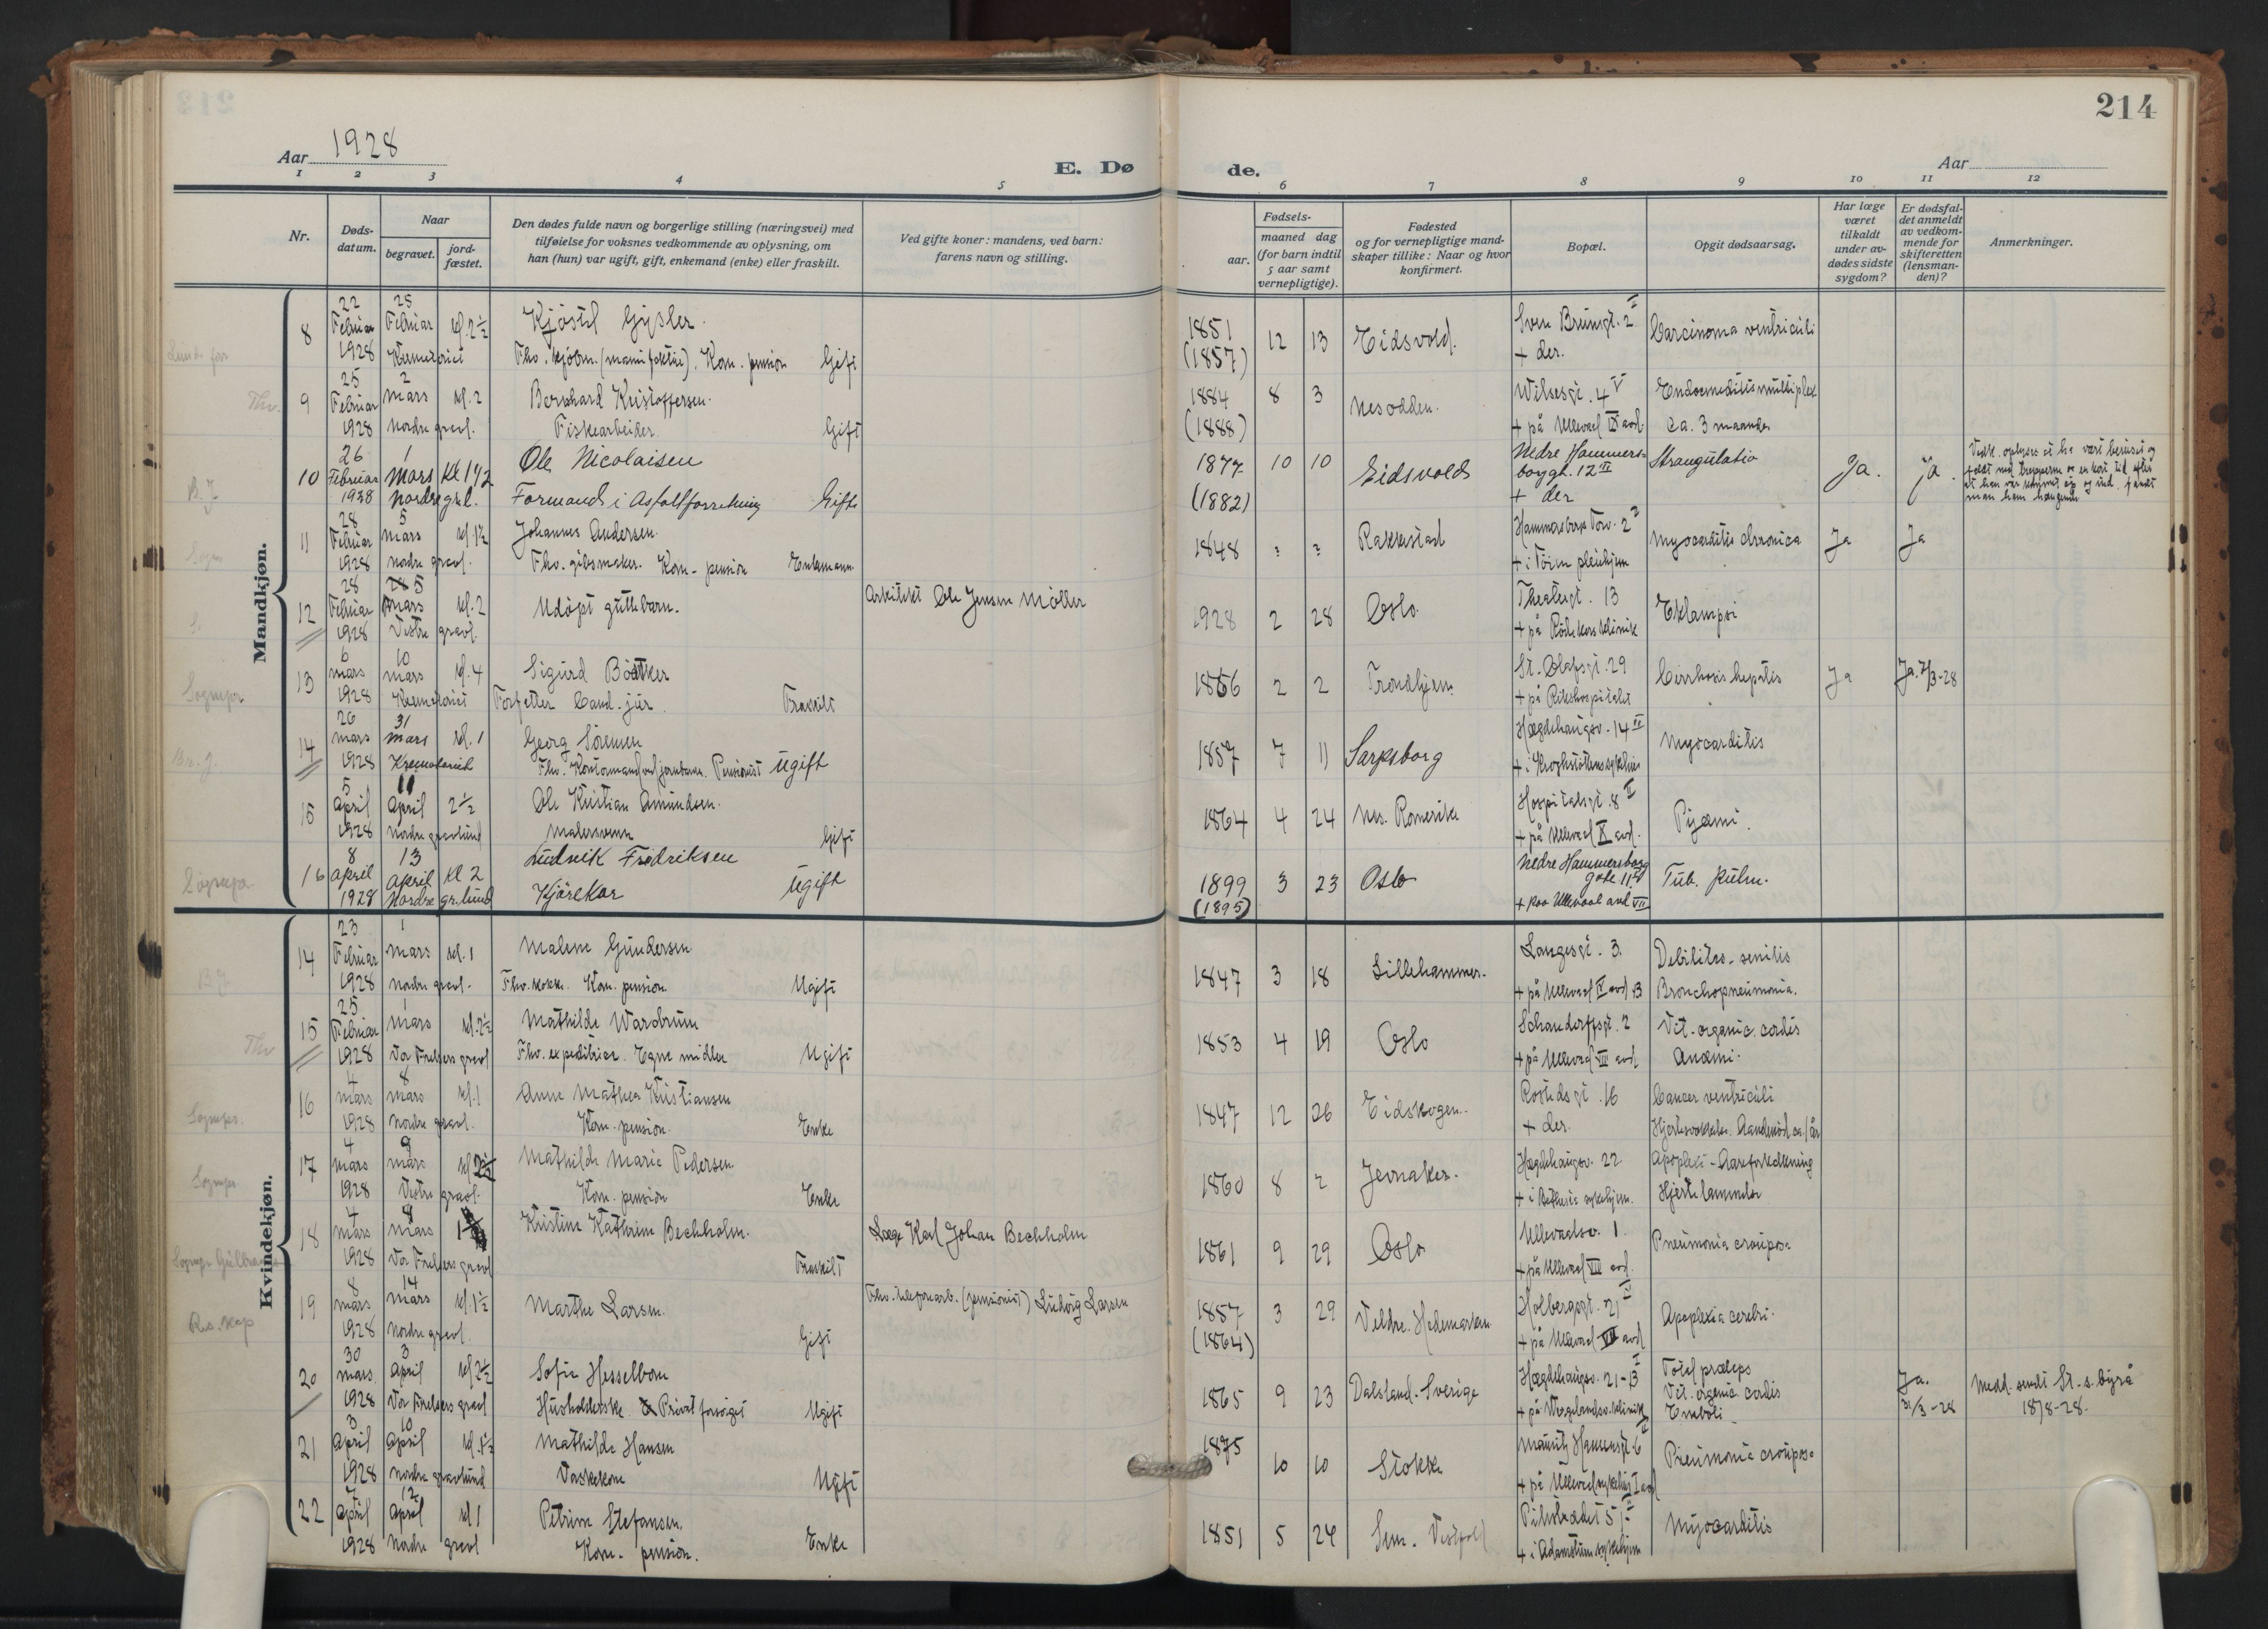 214
Aar 1928
E. Døde.
Aar
1 2 3 4 5 6 7 8 9 10 11 12
Nr.
Dødsdatum.
Naar
begravet.
jordfæstet.
Den dødes fulde navn og borgerlige stilling (næringsvei) med
tilføielse for voksnes vedkommende av oplysning, om
han (hun) var ugift, gift, enkemand (enke) eller fraskilt.
Ved gifte koner: mandens, ved barn:
farens navn og stilling.
Fødsels-
aar.
maaned dag
(for barn indtil
5 aar samt
vernepligtige).
Fødested
og for vernepligtige mand-
skaper tillike: Naar og hvor
konfirmert.
Bopæl.
Opgit dødsaarsag.
Har læge
været
tilkaldt
under av-
dødes sidste
sygdom?
Er dødsfal-
det anmeldt
av vedkom-
mende for
skifteretten
(lensman-
den)?
Anmerkninger.
Mandkjøn.
8 22 Februar 1928 25 Februar Krematoriet kl. 2½
Kjøstel Gysler.
Fhv. kjøbm. (manufaktur). Kom. pension Gift
1851 (1857) 12 13 Eidsvold. Sven Bruunsgt. 2 II + der. Carcinoma ventriculi
9 25 Februar 1928 2 mars kl. 2 Nordre gravl.
Bernhard Kristoffersen.
Fiskearbeider. Gift
1884 (1888) 8 3 Nesodden. Wilsesgt. 4 V + på Ullevaal IX avd. ca. 3 maander
10 26 Februar 1928 1 mars Kl 1½ Nordre grl.
Ole Nicolaisen
Formand i Asfaltforretning Gift
1877 (1882) 10 10 Eidsvold Nedre Hammersborggt. 12 III + der Strangulatio Ja. Ja.
11 28 Februar 1928 5 mars kl. 1½ Nordre gravl.
Johannes Andersen.
Fhv. gibsmaker. Kom. pension Enkemann
1848 ? ? Rakkestad Hammersborg Torv. 2 II myocarditis chronica Ja Ja
12 28 Februar 1928 5 mars kl. 2 Vestre gravl.
Udøpt guttebarn.
Arkitekt Ole Jensen Møller
1928 2 28 Oslo. Theatergt. 13 + på Røde kors klinik Eklampsi
13 6 mars 1928 10 mars kl. 4 Krematoriet
Sigurd Bødtker
Forfatter Cand. jur. Fraskilt
1866 2 2 Trondhjem. St. Olafsgt. 29 + på Rikshospitalet Cirrhosis hepatis Ja Ja. 7/3-28
14 26 mars 1928 31 mars kl. 1 Krematoriet
Georg Sörensen
Fhv. Kontormand ved jernbanen. Pensionist Ugift
1857 7 11 Sarpsborg Hægdehaugsv. 14 II myocarditis
15 5 April 1928 11 April 2½ Nordre gravlund
Ole Kristian Amundsen.
Malersvenn Gift
1864 4 24 Nes. Romerike Hospitalsgt. 8 II + på Ullevaal X avd. Pyæmi.
16 8 April 1928 13 April Kl 2 Nordre gr.lund
Ludvik Fredriksen
Kjørekar Ugift
1899 (1895) 3 23 Oslo Nedre Hammersborg gate 11 + paa Ullevaal avd VII Tub. pulm.
Kvindekjøn.
14 23 Februar 1928 1 mars kl. 1 Nordre gravl.
Malene Gundersen
Fhv. kokke. Kom. pension Ugift
1847 3 18 Lillehammer. Langesgt. 3. + på Ullevaal IV avd. B Debilitas senilis Bronchopneumonia.
15 25 Februar 1928 1 mars kl. 2½ Vor Frelsers gravl
Mathilde Warobrune
Fhv. expeditrice. Egne midler Ugift
1853 4 19 Oslo Schandorffsgt. 2 + på Ullevaal VIII avd. Vit. organic. cordis Anæmi.
16 4 mars 1928 8 mars kl. 1 Nordre gravl.
Anne Mathea Kristiansen
Kom. pension. Enke
1847 12 26 Eidskogen. Rostedsgt. 16 + der. Cancer ventriculi
17 4 mars 1928 9 mars Vestre gravl.
Mathilde Marie Pedersen
Kom. pension Enke
1860 8 2 Jevnaker. Hægdehaugsv. 22 + i Bethania sykehjem. Apoplexi - Aareforkalkning Hjertelammelse
18 4 mars 1928 8 mars Vor Frelsers gravl
Kristine Kathrine Bechholm. Fraskilt
Læge Karl Johan Bechholm
1861 9 29 Oslo Ullevaalsv. 1. + på Ullevaal VIII avd. Pneumonia crouposa
19 8 mars 1928 14 mars kl. 1½ Nordre gravl.
Marthe Larsen. Gift
Fhv. telefonarb. (pensionist) Ludvig Larsen
1857 (1864) 3 29 Veldre. Hedemarken Holbergsgt. 21 IV + på Ullevaal VII avd Apoplexia cerebri.
20 30 mars 1928 3 April kl 2½ Vor Frelsers gravl
Sofia Hesselbom
Husholderske. Privat forsørget Ugift
1865 9 23 Dalsland. Sverige Hægdehaugsv. 21-B Vit. organic cordis Emboli Ja. 31/3-28 Medd. sendt St. s. byrå 18/8-28.
21 3 April 1928 10 April kl. 1½ Nordre gravlund
Mathilde Hansen
Vaskekone Ugift
1875 10 10 Stokke Mauritz Hansensgt. 6 + på Ullevaal sykehus I avd Pneumonia crouposa
22 7 April 1928 12 April kl 1 Nordre gravl
Petrine Stefansen.
Kom. pension. Enke
1851 5 24 Sem. Vestfold Pilestrædet 51 + i Adamstuen sykehjem Myocarditis